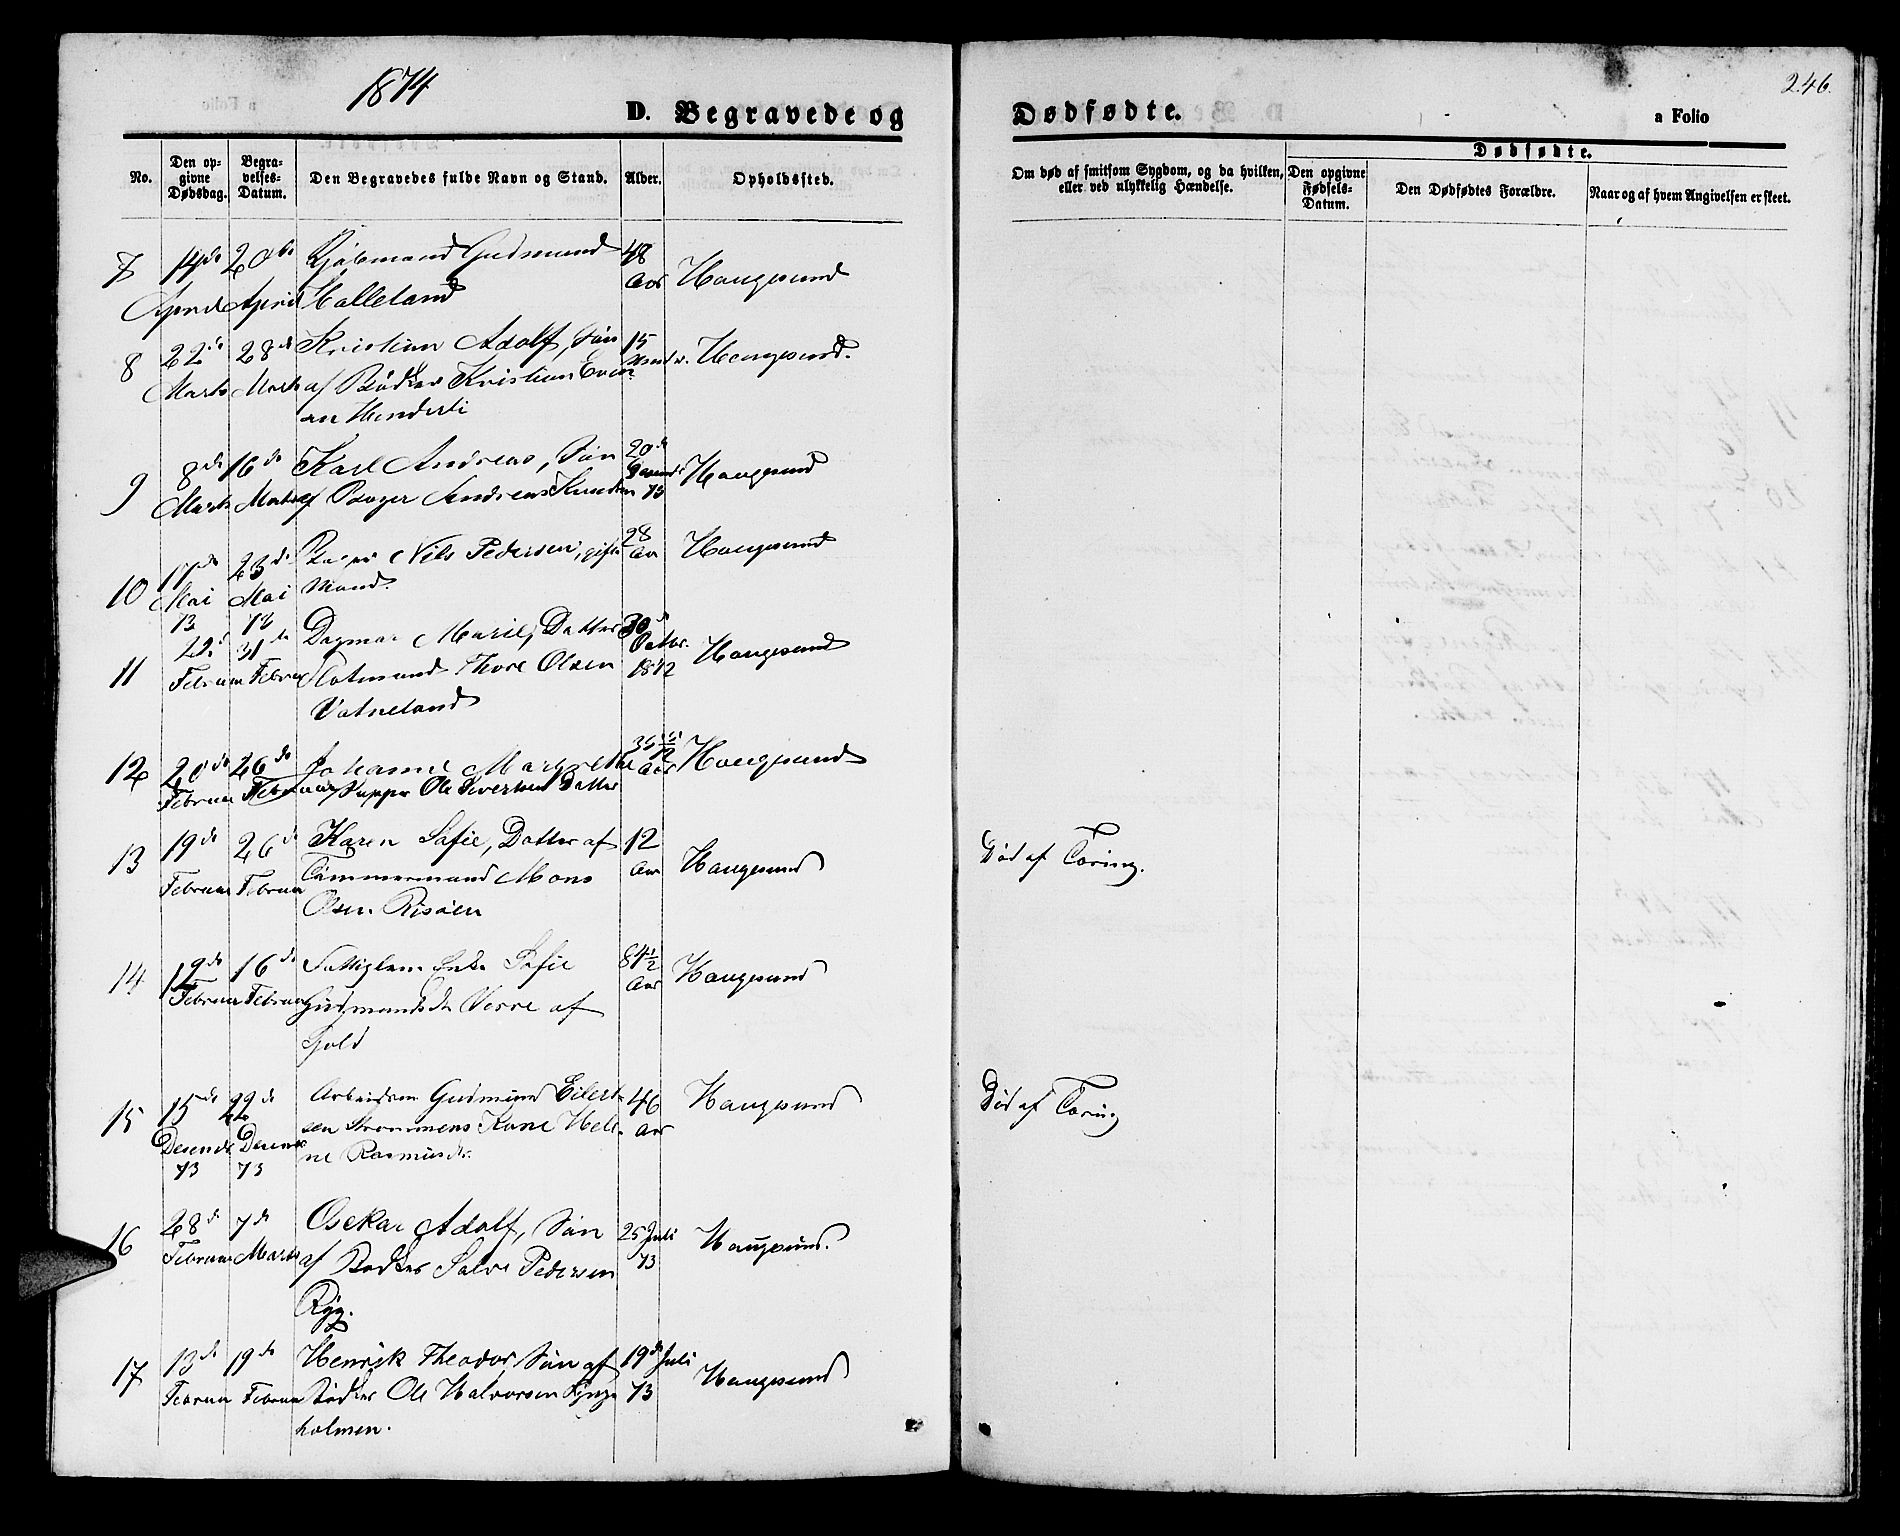 1874
D. Begravede og
Dødfødte.
246.
a Folio
No.
Den opgivne Dødsdag.
Begravelses-Datum.
Den Begravedes fulde Navn og Stand.
Alder.
Opholdssted.
Om død af smitsom Sygdom, og da hvilken, eller ved ulykkelig Hændelse.
Dødfødte.
Den opgivne Fødsels-Datum.
Den Dødfødtes Forældre.
Naar og af hvem Angivelsen er skeet.
7 14de 20de Kjøbmand Gudmund 48
April April Halleland Aar Haugesund
8 22de 28de Kristian Adolf, Søn 15
Marts Marts af Bødker Kristian Haugesund.
9 8de 16de Karl Andreas, Søn 20de
Marts Marts af Andreas Knudsen 73 Haugesund
10 17de 23de Nils Pedersen, gift 28 Aar Haugesund
Mai Mai Mand.
73 73
11 31te Dagmar Marie, Datter 30
Februar Februar Thore Olsen 1872 Haugesund
Vatneland
12 20de 26de Johanne Margrethe Aar Haugesund
Februar Februar Ole Iversens Datter
13 19de 26de Karen Sofie, Datter af 12 Haugesund
Februar Februar Tømmermand Mons Aar
Olsen Risøen
Død af Tæring.
14 16de Fattiglem Enke Sofie 84½ Haugesund
Februar Februar Gudmundsdtr af Aar
15 15de 22de Arbeidsm Gudmund Eilert- 46 Haugesund
Desember Desember sen Strømmens Kone Hele- Aar
73 73 ne Rasmusdtr.
Død af Tæring
16 28de 7de Oskar Adolf, Søn 25 Juli
Februar Marts af Bødker Salve Pedersen 73 Haugesund.
Ryg.
17 13de 19de Henrik Theodor, Søn af 19de Juli
Februar Februar Bødker Ole Halvorsen 73 Haugesund
holmen.